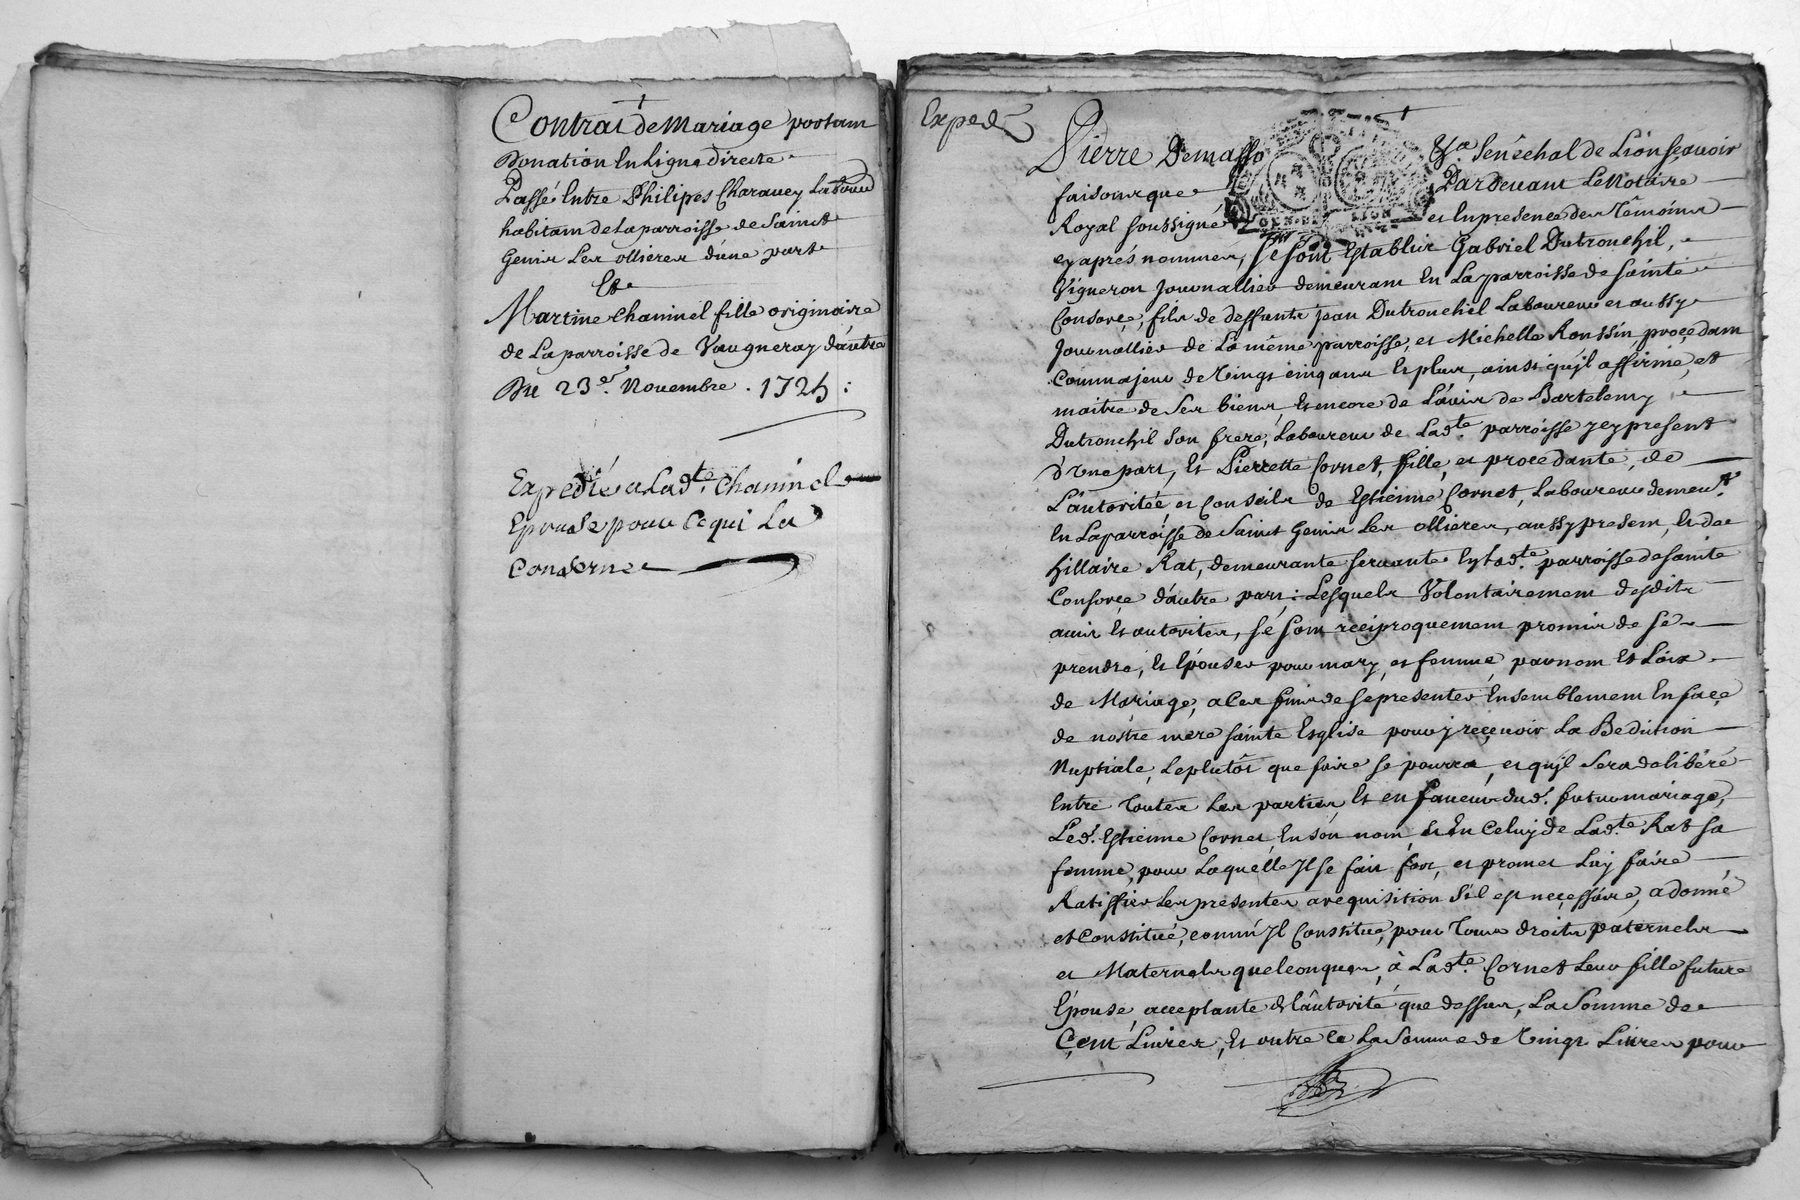 Contrat de Mariage portant
Donation En Ligne directe
Passé Entre Philipes Charavey Laboureur
habitant de la parroisse de Sainct
Genis Les ollieres d'une part
Et
Martine Chaninel fille originaire
de La parroisse de Vaugneray d'autre
Du 23e. Novembre . 1725 :
Expedié a Lad.te Chaninel
Epouse pour Ce qui La
Conserne
Exped.
Pierre Demasso
Sénéchal de Lion sçavoir
faisons que
Pardevant Le Notaire
Royal soussigné
et En presence des Témoins
GEN. DE LION
cy après nommés, se sont Establis Gabriel Dutronchil,
Vigneron Journallier demeurant En La parroisse de Sainte
Consorçe, fils de deffunt jean Dutronchil Laboureur et aussy
Journallier de La même parroisse, et Michelle Roussin, proçedant
Comme majeur de Vingt cinq ans Es plus, ainsi qu'jl affirme, et
maitre de Ses biens, Et encore de L'avis de Bartelemy
Dutronchil son frere, Laboureur de Lad.te parroisse jcy present
D'Une part, Et Pierrette Cornet, fille, et procedante, de
L'autorité, et Conseils de Estienne Cornet, Laboureur demeurt.
En La parroisse de Sainct Genis Les ollieres, aussy present, Et de
hillaire Rat, demeurante servante En lad.te parroisse de Sainte
Consorçe d'autre part : Lesquels Volontairement desdits
avis Et autorités, Sé sont réciproquement promis de se
prendre, Et Epouser pour mary, et femme, par nom Et Loix
de Mariage, a Ces fins de se presenter Ensemblement En façe
de nostre mere Sainte Esglise pour y reçevoir La Bédiction
Nuptiale, Le plutôt que faire se pourra, et qu'jl sera délibéré
Entre Toutes Les parties Et en faveur dud. futur mariage,
Led. Estienne Cornet En son nom, Et En Celuy de Lad.te Rat sa
femme, pour Laquelle Jl se fait fort, et promet Luy faire
Ratiffier Les présentes a requisition S'il est neçessaire, a donné
et Constitué, comm' Jl Constitue, pour Tous droits paternels
et Maternels quelconques, à Lad.te Cornet Leur fille future
Epouse, acceptante de L'autorité que dessus, La Somme de
Çent Livres, Et outre ce La Somme de Vingt Livres pour